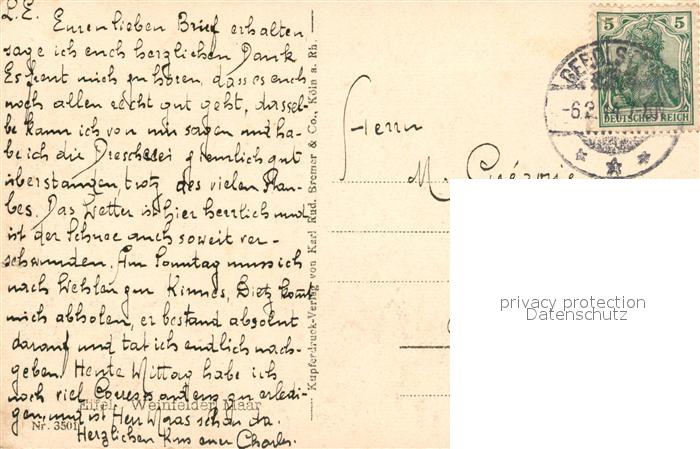 L. E.
Euren lieben Brief erhalten
sage ich euch herzlichen Dank
Es freut mich zu hören, dass es euch
noch allen recht gut geht, dassel-
be kann ich von mir sagen und ha-
be ich die Drescherei ziemlich gut
überstanden, trotz des vielen Stau-
bes. Das Wetter ist hier herrlich und
ist der Schnee auch soweit ver-
schwunden. Am Sonntag muss ich
nach zur Kirmes, Dietz kommt
mich abholen, er bestand absolut
darauf und tat ich endlich nach-
geben. Heute Mittag habe ich
noch viel Correspondenz zu erledi-
gen, und ist Herr Maas schon da.
Herzlichen Kuss euer Charles.
Eifel. Weinfelder Maar
Nr. 3501
Kupferdruck-Verlag von Karl Rud. Bremer & Co., Köln a. Rh.
Herrn
M.
5 5
DEUTSCHES REICH
GEROLST
-6.2.
privacy protection
Datenschutz